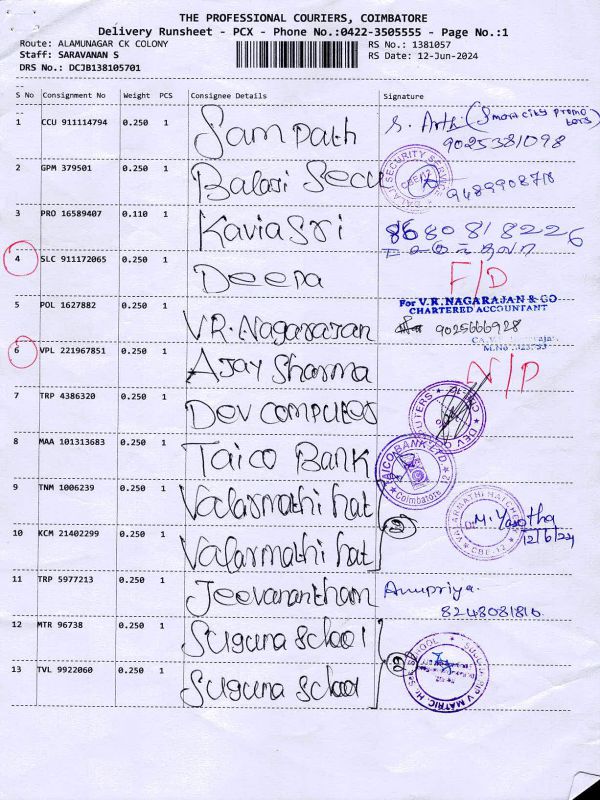 THE PROFESSIONAL COURIERS, COIMBATORE
Delivery Runsheet - PCX - Phone No.:0422-3505555 - Page No.:1
Route: ALAMUNAGAR CK COLONY
Staff: SARAVANAN S
DRS No.: DCJB138105701
RS No.: 1381057
RS Date: 12-Jun-2024
S No Consignment No Weight PCS Consignee Details Signature
1 CCU 911114794 0.250 1 Sampath S. (Smart city promo
tors)
9025381098
2 GPM 379501 0.250 1 Balaji Secu SECURITY SERVICE CBE-12 9489908718
3 PRO 16589407 0.110 1 Kavia Sri 8680818226
4 SLC 911172065 0.250 1 Deepa F/D
5 POL 1627882 0.250 1 V.R. Nagarajan For V.R. NAGARAJAN & CO
CHARTERED ACCOUNTANT
9025666928
6 VPL 221967851 0.250 1 Ajay Sharma N/P
7 TRP 4386320 0.250 1 Dev Computes
8 MAA 101313683 0.250 1 Taico Bank TAICO BANK LTD Coimbatore 12
9 TNM 1006239 0.250 1 Valarmathi hat VALARMATHI HATCHERY CBE-12 M. Yasotha
10 KCM 21402299 0.250 1 Valarmathi hat 2 12/6/24
11 TRP 5977213 0.250 1 Jeevanantham Anupriya.
8248081816
12 MTR 96738 0.250 1 Suguna School
13 TVL 9922060 0.250 1 Suguna School 2